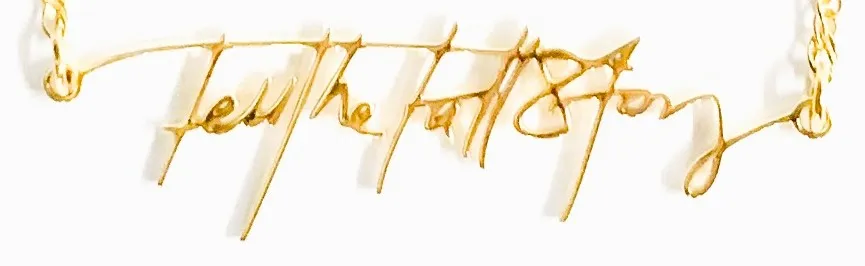 Tell The Tall Story